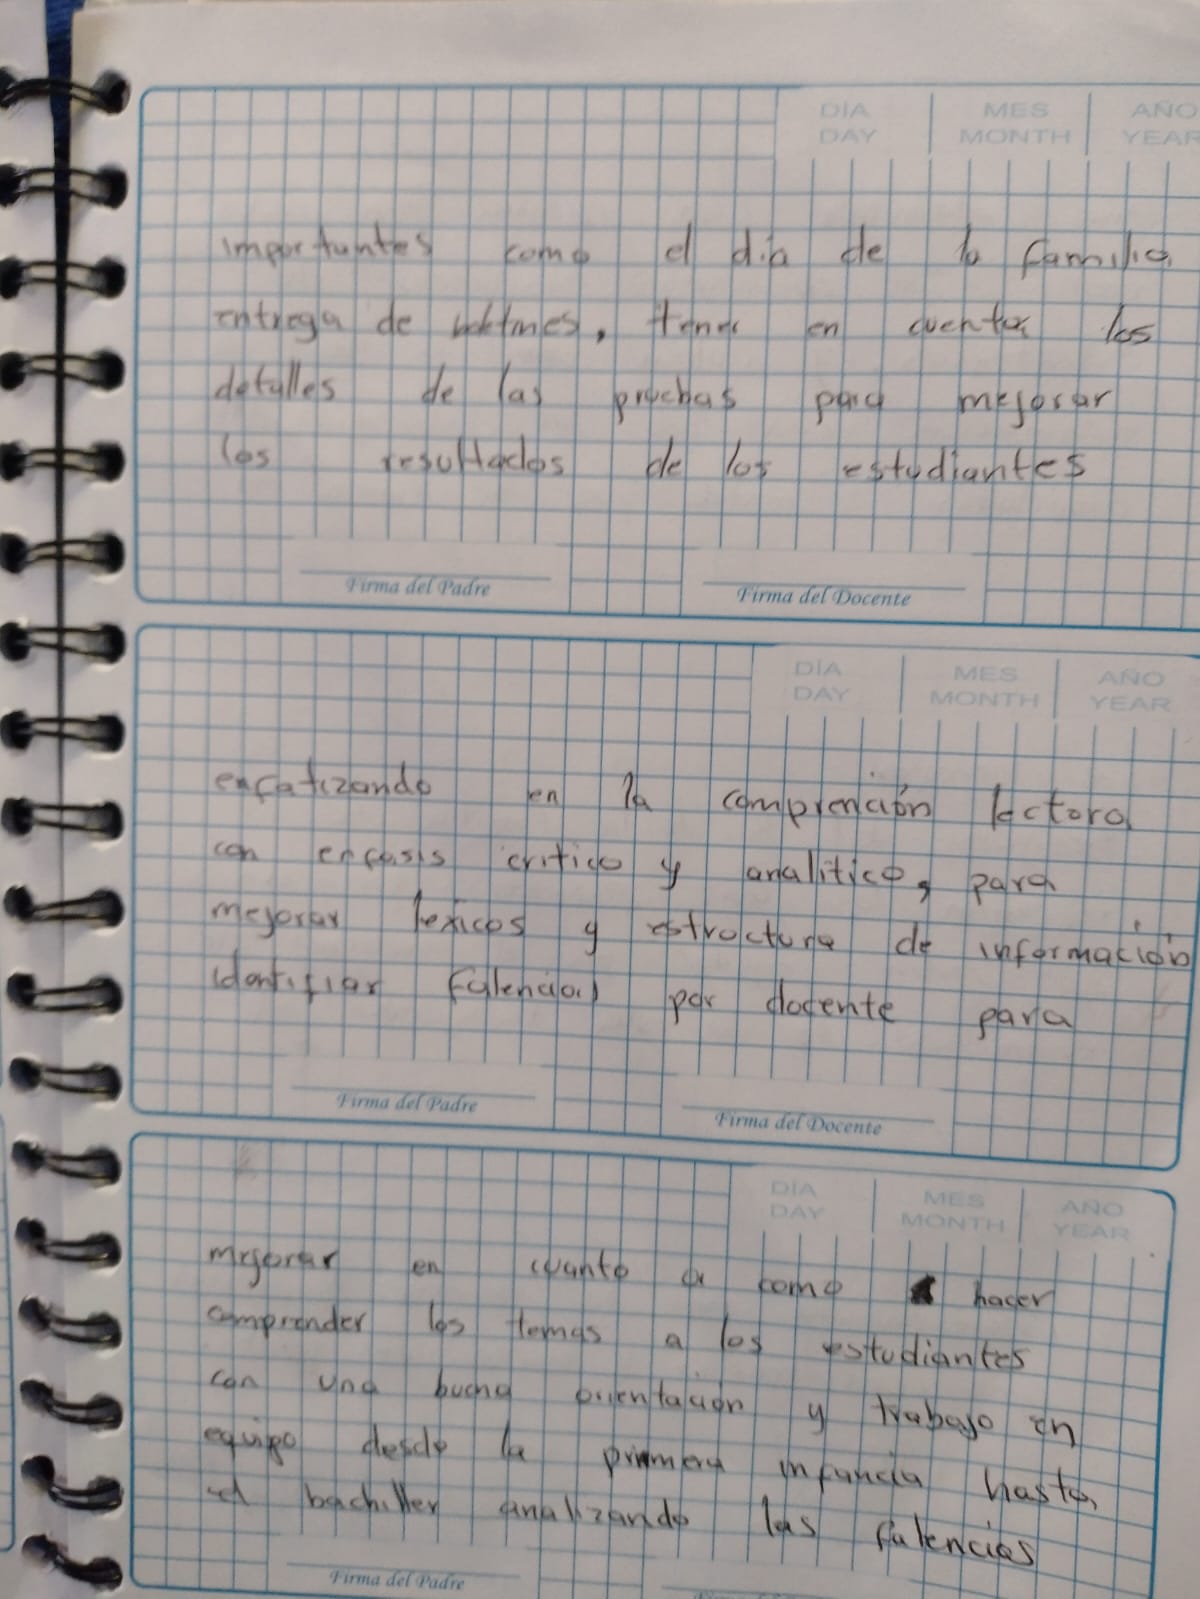 DÍA MES AÑO
DAY MONTH YEAR
importantes como el dia de la familia
entrega de boletines, tener en cuenta los
detalles de las pruebas para mejorar
los resultados de los estudiantes
Firma del Padre Firma del Docente
DÍA MES AÑO
DAY MONTH YEAR
enfatizando en la comprención lectora
con enfasis critico y analitico, para
mejorar lexicos y estructura de información
identifiar falencias por docente para
Firma del Padre Firma del Docente
DÍA MES AÑO
DAY MONTH YEAR
mejorar en cuanto a como hacer
comprender los temas a los estudiantes
con una buena orientación y trabajo en
equipo desde la primera infancia hasta
el bachiller analizando las falencias
Firma del Padre